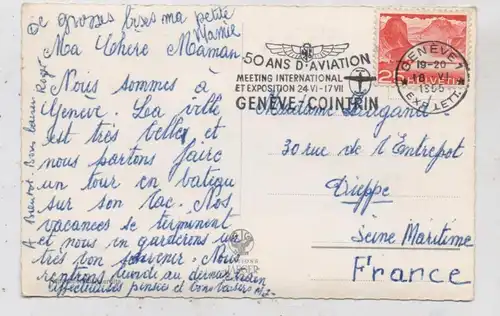 De grosses bises ma petite
Mamie
Ma Chère Maman
Nous sommes à
Genève. La ville
est très belle et
nous partons faire
un tour en bateau
sur son lac. Nos
vacances se terminent
et nous en garderons un
très bon souvenir. Nous
rentrons lundi au
affectueuses pensées et bons baisers
A Bientôt. Bons baisers Roger
50 ANS D'AVIATION
MEETING INTERNATIONAL
ET EXPOSITION 24·VI-17·VII
GENÈVE-COINTRIN
GENÈVE 1
19-20
18 VI
EXP. LETT.
HELVETIA
Madame
30 rue de l'Entrepot
Dieppe
Seine Maritime
France
JAEGER